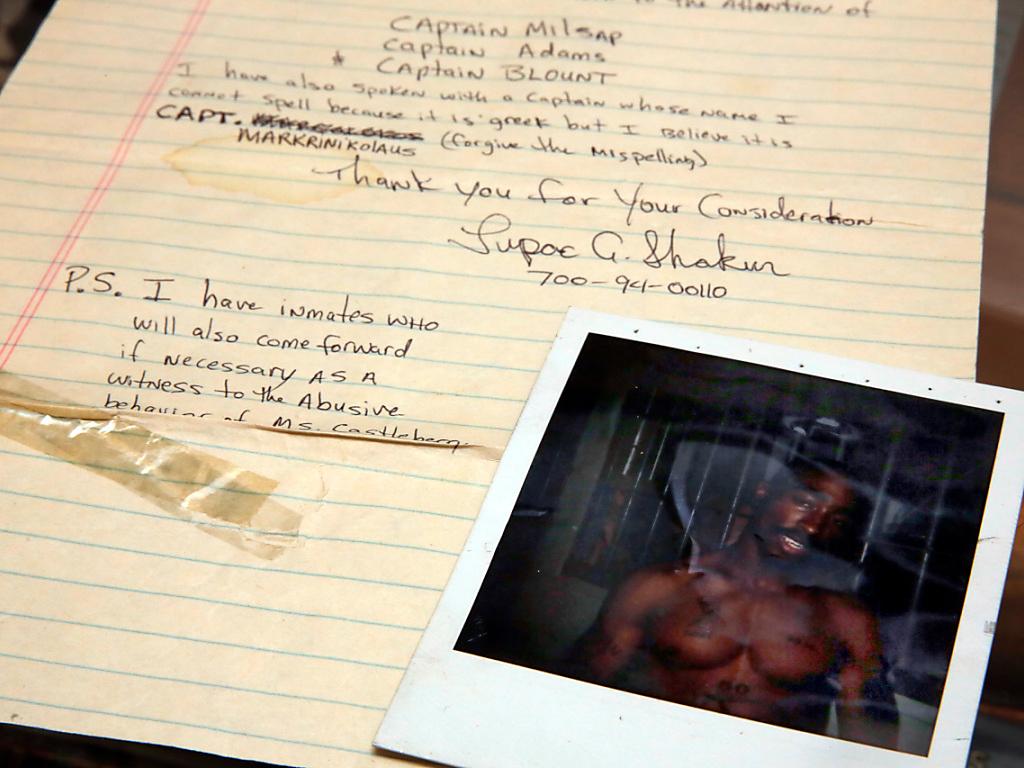 to the Attention of
CAPTAIN Milsap
Captain Adams
* CAptain BLOUNT
I have also spoken with a Captain whose name I
cannot spell because it is greek but I Believe it is
CAPT.
MARKRINIKOLAUS (forgive the MIspelling)
Thank you for Your Consideration
Tupac A. Shakur
700-94-00110
P.S. I have inmates WHO
will also come forward
if necessary AS A
witness to the Abusive
behavior of Ms. Castleberry